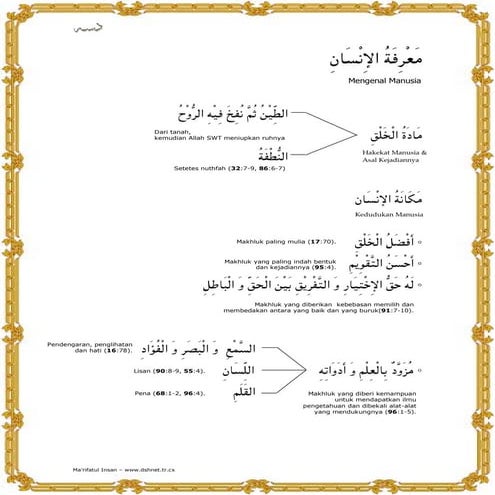 مَعْرِفَةُ الإِنْسَانِ
Mengenal Manusia
الطِّيْنُ ثُمَّ نُفِخَ فِيْهِ الرُّوْحُ
Dari tanah,
kemudian Allah SWT meniupkan ruhnya
مَادَةُ الْخَلْقِ
Hakekat Manusia &
Asal Kejadiannya
النُّطْفَةُ
Setetes nuthfah (32:7-9, 86:6-7)
مَكَانَةُ الإِنْسَان
Kedudukan Manusia
أَفْضَلُ الْخَلْقِ
Makhluk paling mulia (17:70).
أَحْسَنُ التَّقْوِيْمِ
Makhluk yang paling indah bentuk
dan kejadiannya (95:4).
لَهُ حَقُّ الإِخْتِيَارِ وَ التَّفْرِيْقِ بَيْنَ الْحَقِّ وَ الْبَاطِلِ
Makhluk yang diberikan kebebasan memilih dan
membedakan antara yang baik dan yang buruk(91:7-10).
مُزَوَّدٌ بِالْعِلْمِ وَ أَدَوَاتِهِ
Makhluk yang diberi kemampuan
untuk mendapatkan ilmu
pengetahuan dan dibekali alat-alat
yang mendukungnya (96:1-5).
السَّمْعِ وَ الْبَصَرِ وَ الْفُؤَادِ
Pendengaran, penglihatan
dan hati (16:78).
اللِّسَانِ
Lisan (90:8-9, 55:4).
القَلَمِ
Pena (68:1-2, 96:4).
Ma'rifatul Insan – www.dshnet.tr.cx